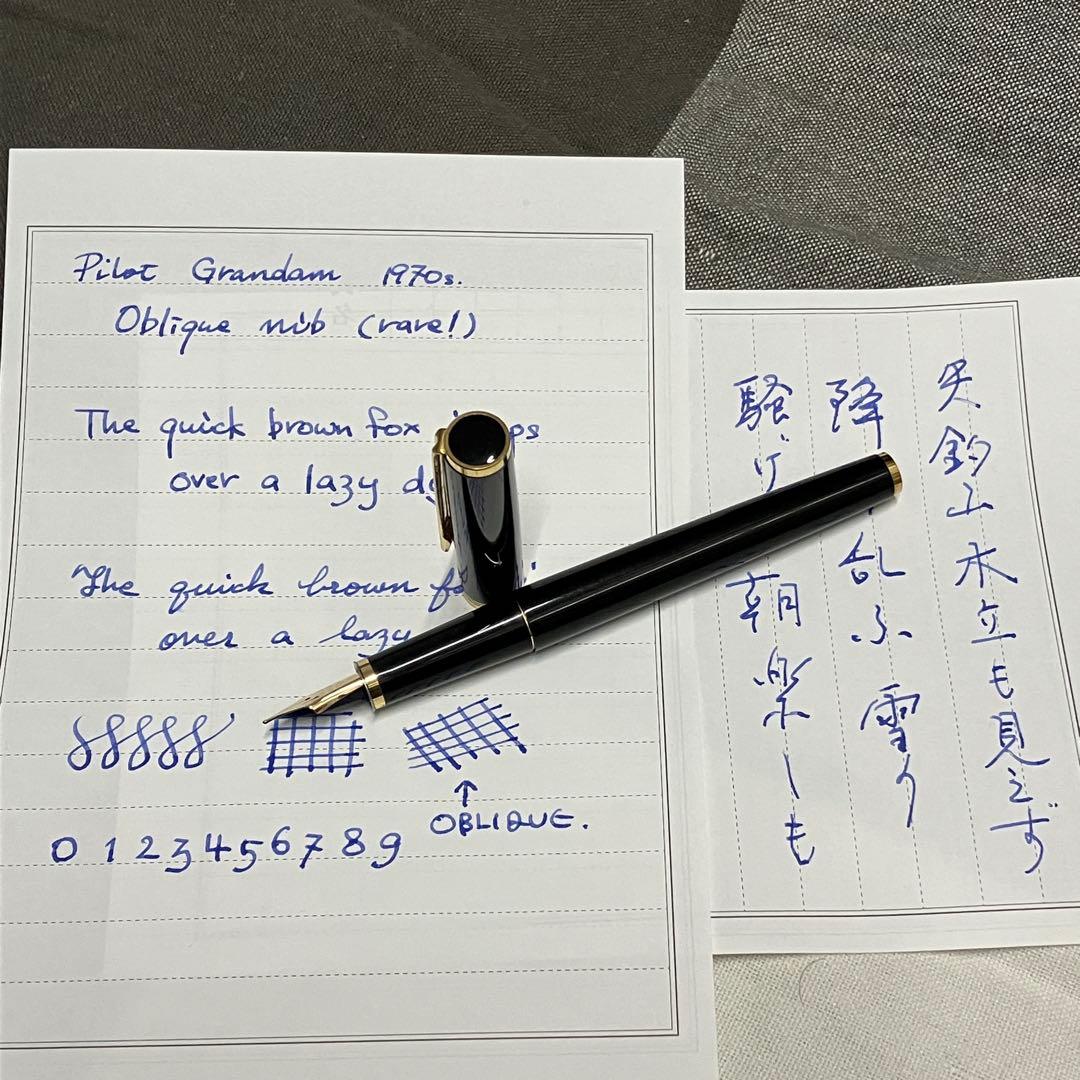 Pilot Grandam 1970s.
Oblique nib (rare!)
The quick brown fox
over a lazy
The quick brown
over a lazy
OBLIQUE.
0 1 2 3 4 5 6 7 8 9
矢釣山木立も見えず
降 乱ふ雪の
騒げ 朝楽しも